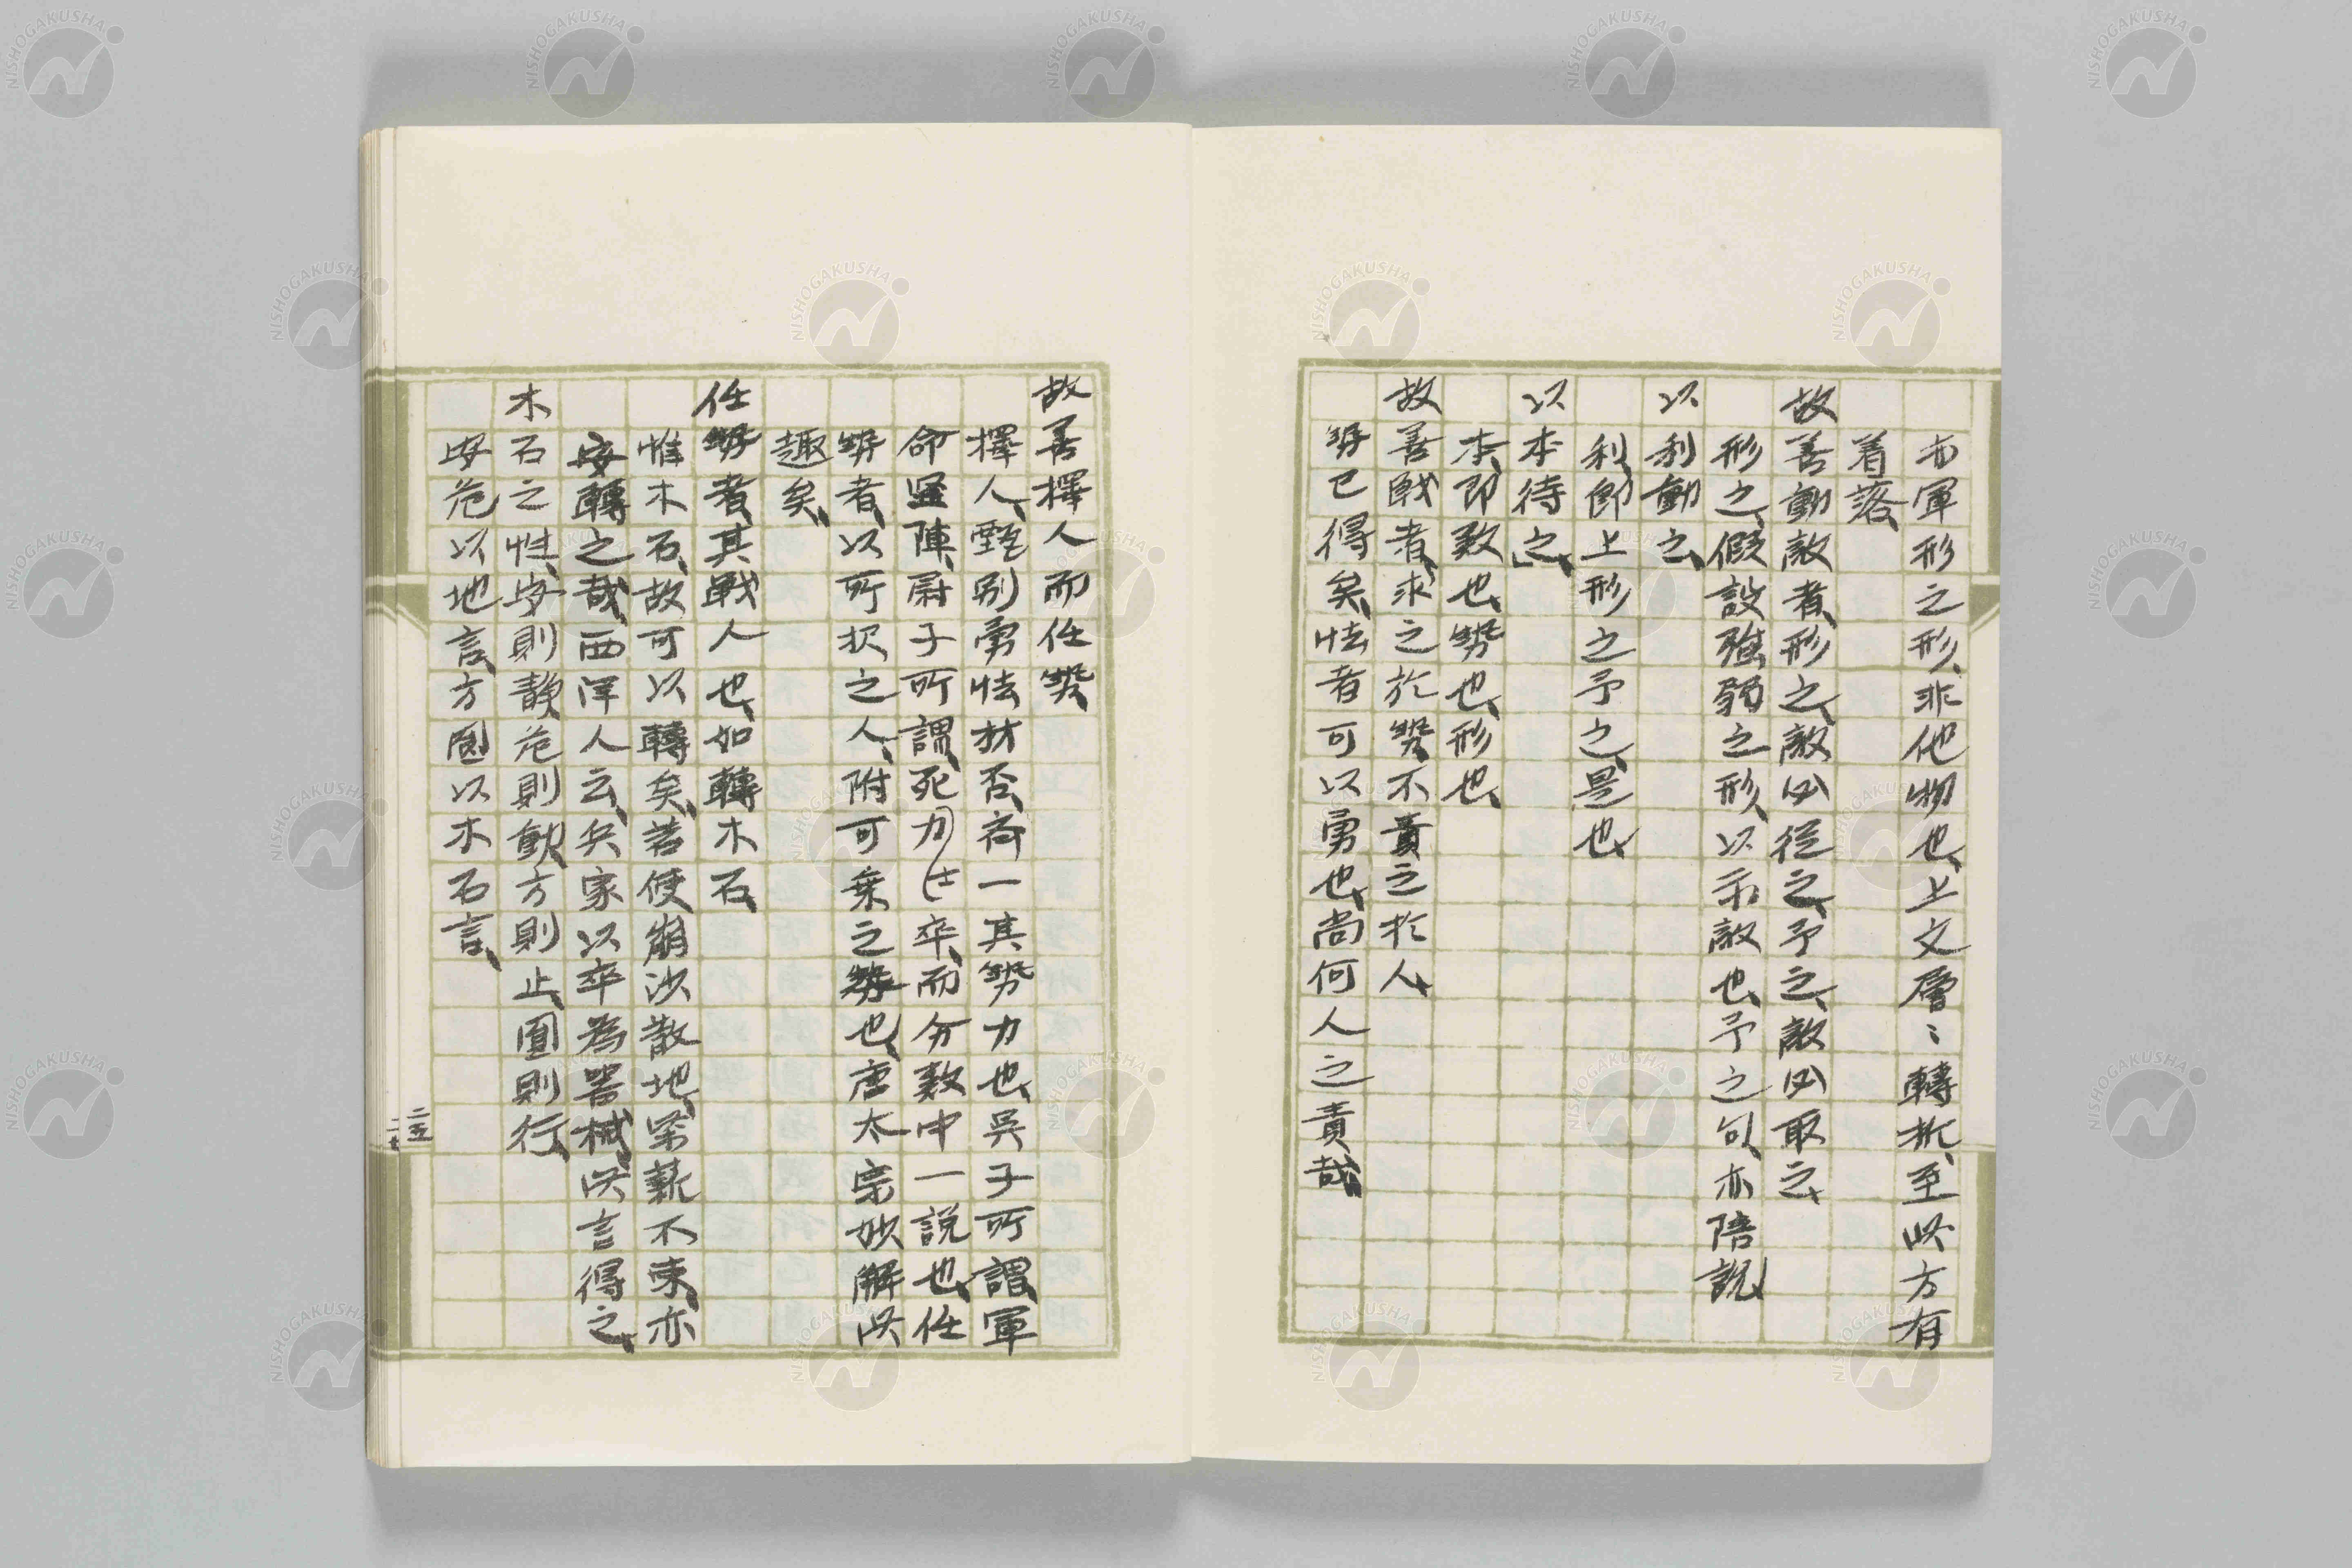 亦軍形之形、非他物也、上文層〻轉折、至此方有
着落、
故善動敵者、形之、敵必從之、予之、敵必取之、
形之、假設強弱之形、以示敵也、予之句、亦陪説、
以利動之、
利、卽上形之予之、是也、
以本待之、
本、即数也、勢也、形也、
故善戰者、求之於勢、不責之於人、
勢已得矣、怯者可以勇也、尚何人之責哉、
故善擇人而任勢、
擇人、甄別勇怯材否、斉一其勢力也、呉子所謂軍
命、陣、尉子所謂、死力士卒、而分数中一説也、任
勢者、以所択之人、附可乗之勢也、唐太宗妙解此
趣矣、
任勢者、其戰人也、如轉木石、
惟木石、故可以轉矣、若使崩沙散地、梁薪不束、亦
安轉之哉、西洋人云、兵家以卒為器械、此言得之、
木石之性、安則静、危則動、方則止、圓則行、
安危以地言、方圓以木石言、
二五
NISHOGAKUSHA